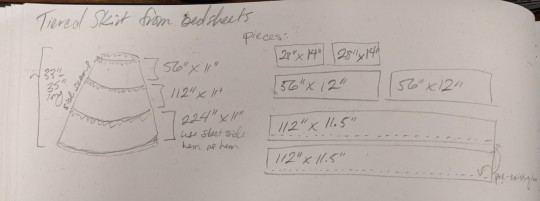 Tiered Skirt from bedsheets
pieces:
33"-
35"
long
side seams
56" x 11"
112" x 11"
224" x 11"
use sheet side
hem as hem
28" x 14"
28" x 14"
56" x 12"
56" x 12"
112" x 11.5"
112" x 11.5"